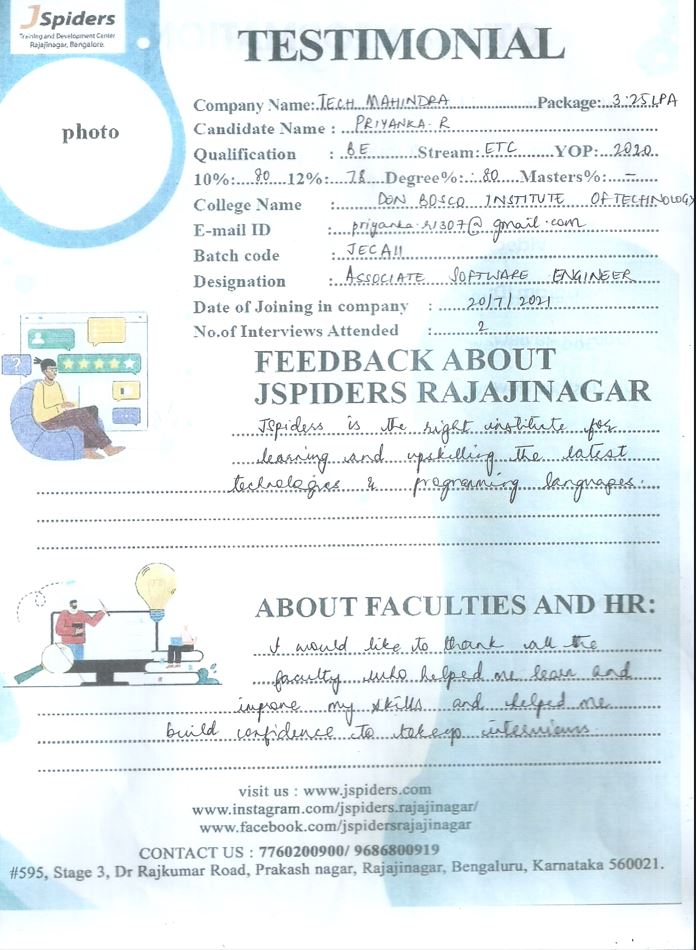 JSpiders
Training and Development Center
Rajajinagar, Bangalore.
TESTIMONIAL
photo
Company Name: TECH MAHINDRA Package: 3.25LPA
Candidate Name : PRIYANKA. R
Qualification : BE Stream: ETC YOP: 2020
10%: 80 12%: 78 Degree%: 80 Masters%: –
College Name DON BOSCO INSTITUTE OF TECHNOLOGY
E-mail ID : priyanka.r1307@gmail.com
Batch code : JECA11
Designation : ASSOCIATE SOFTWARE ENGINEER
Date of Joining in company : 20/7/2021
No.of Interviews Attended : 2
FEEDBACK ABOUT
JSPIDERS RAJAJINAGAR
JSpiders is the right institute for
learning and upskilling the latest
technologies & programing languages.
ABOUT FACULTIES AND HR:
I would like to thank all the
faculty who helped me learn and
improve my skills and helped me
build confidence to takeup interviews.
visit us : www.jspiders.com
www.instagram.com/jspiders.rajajinagar/
www.facebook.com/jspidersrajajinagar
CONTACT US : 7760200900/ 9686800919
#595, Stage 3, Dr Rajkumar Road, Prakash nagar, Rajajinagar, Bengaluru, Karnataka 560021.